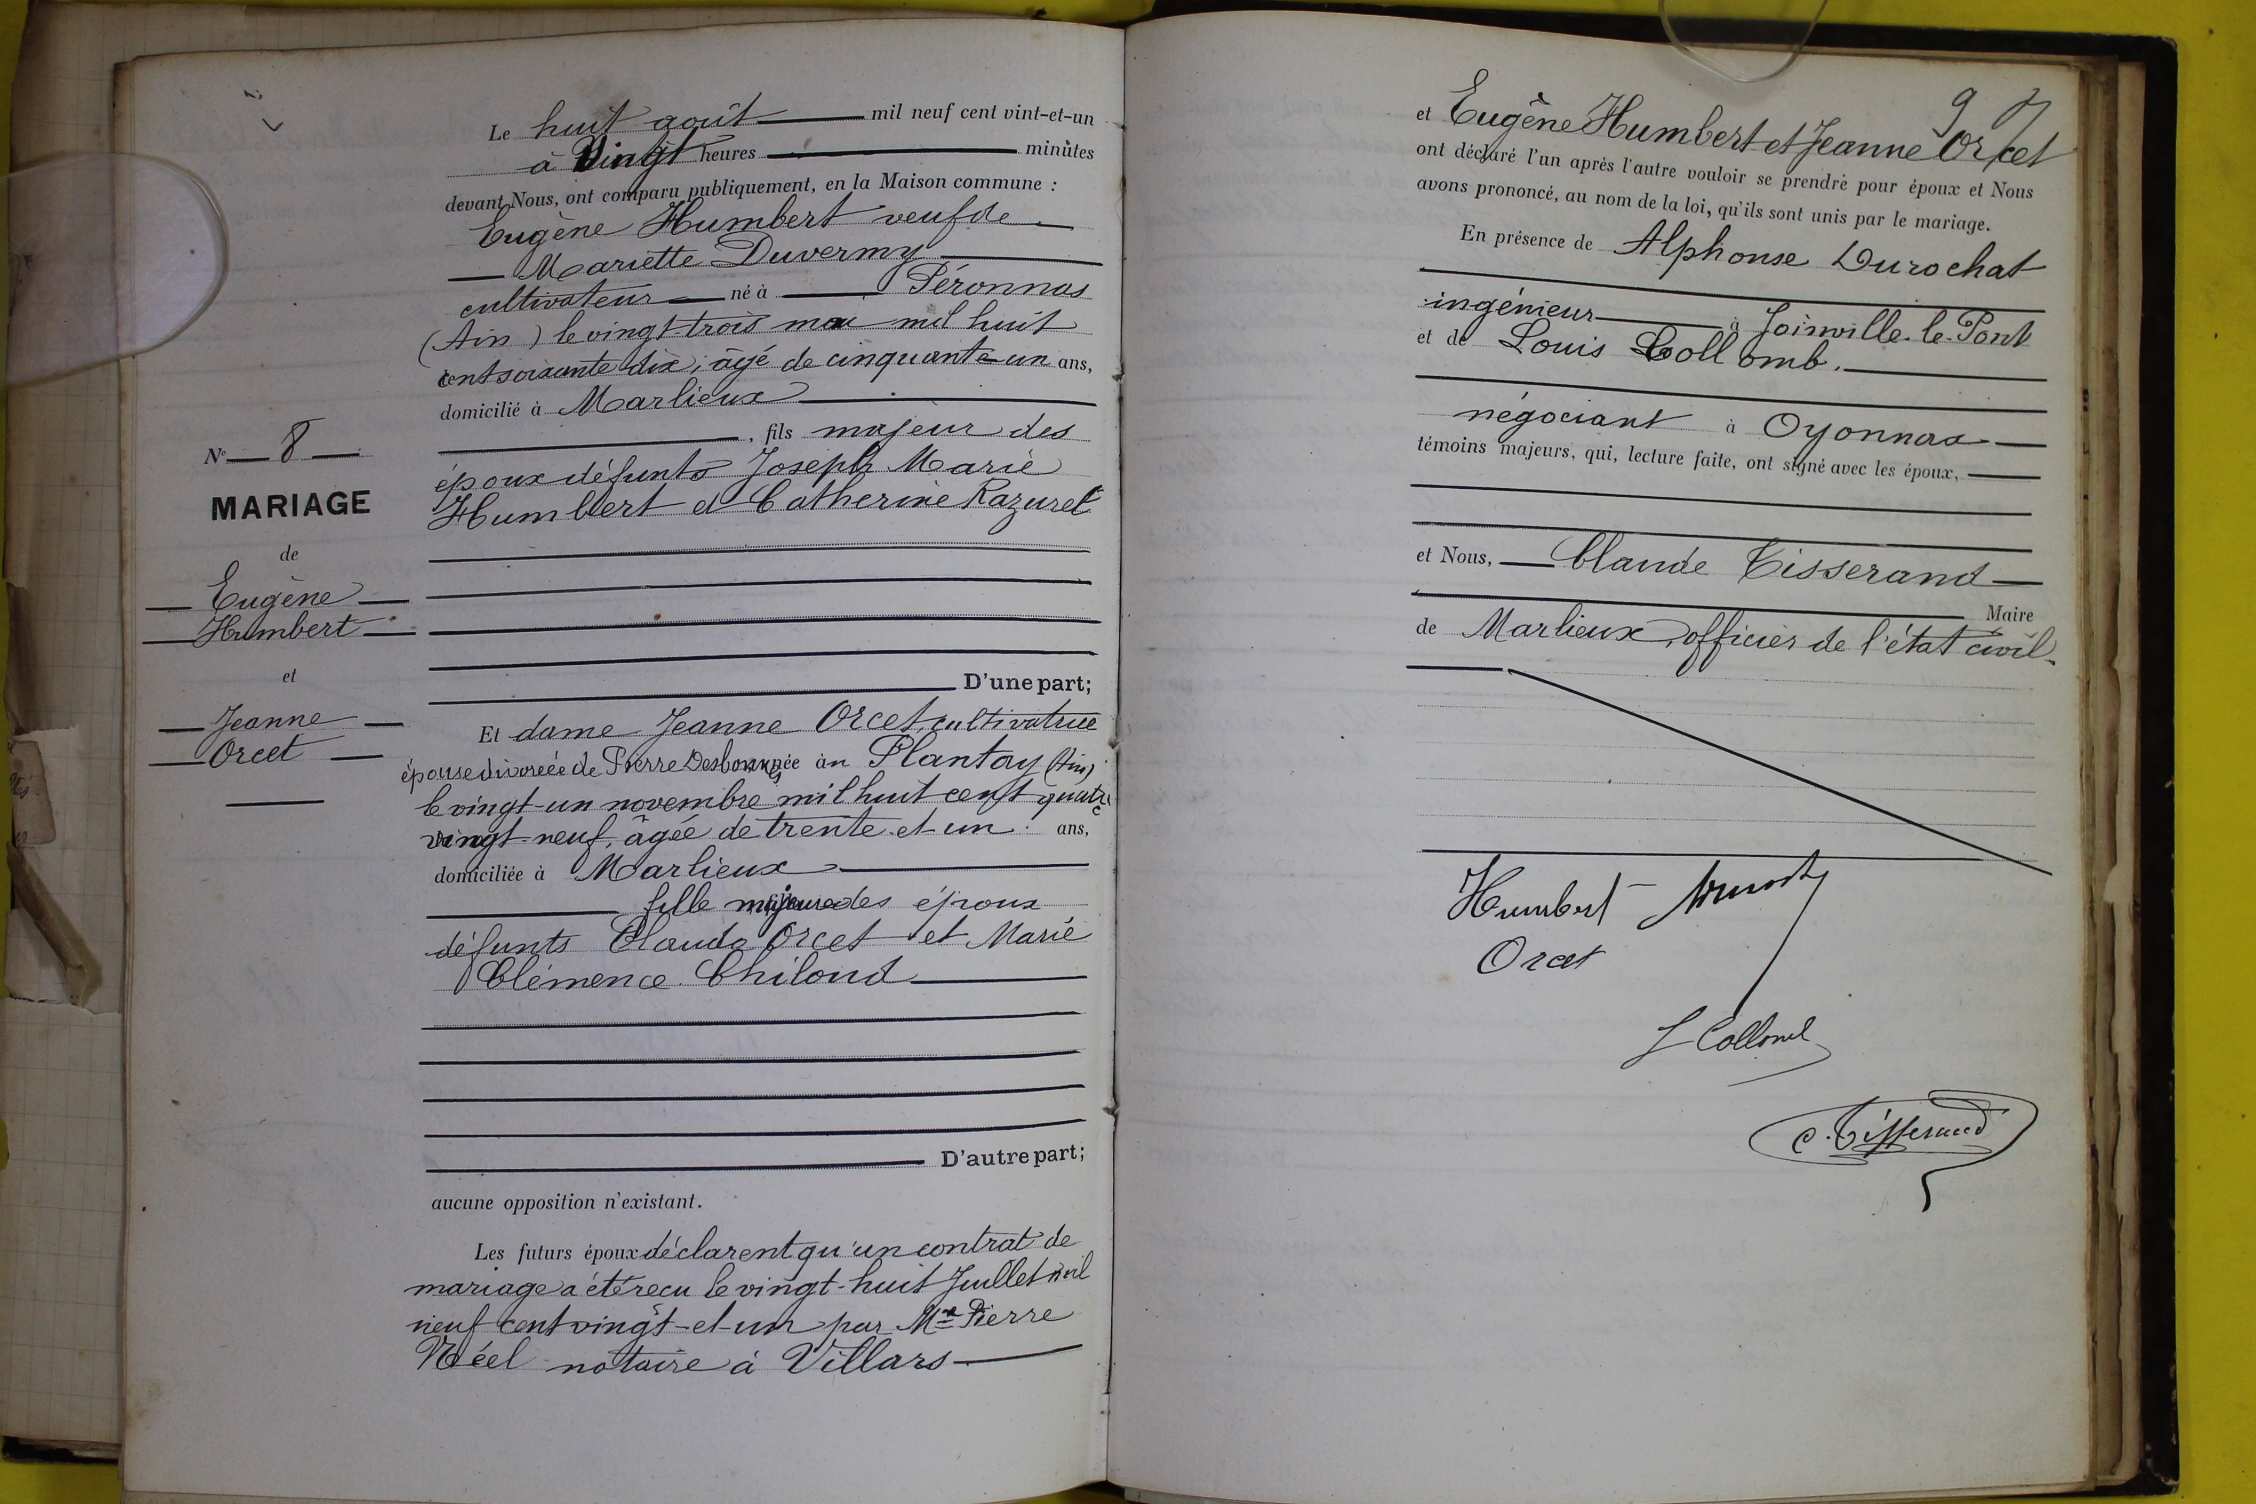 Le huit août mil neuf cent vint-et-un
à Vingt heures minutes
devant Nous, ont comparu publiquement, en la Maison commune :
Eugène Humbert veuf de
Mariette Duvermy
cultivateur né à Péronnas
(Ain) le vingt-trois mai mil huit
cent soixante dix, âgé de cinquante-un ans,
domicilié à Marlieux
, fils majeur des
époux défunts Joseph Marie
Humbert et Catherine Razurel
D'une part;
N° 8
MARIAGE
de
Eugène
Humbert
et
Jeanne
Orcet
Et dame Jeanne Orcet, cultivatrice
épouse divorcée de Pierre née au Plantay (Ain)
le vingt-un novembre mil huit cent quatre
vingt-neuf, âgée de trente-et-un ans,
domiciliée à Marlieux
fille majeure des époux
défunts Claude Orcet et Marie
Clémence Chiloud
D'autre part;
aucune opposition n'existant.
Les futurs époux déclarent qu'un contrat de
mariage a été reçu le vingt-huit Juillet mil
neuf cent vingt-et-un par Me Pierre
notaire à Villars
97
et Eugène Humbert et Jeanne Orcet
ont déclaré l'un après l'autre vouloir se prendre pour époux et Nous
avons prononcé, au nom de la loi, qu'ils sont unis par le mariage.
En présence de Alphonse Durochat
ingénieur à Joinville-le-Pont
et de Louis Collomb.
négociant à Oyonnax
témoins majeurs, qui, lecture faite, ont signé avec les époux,
et Nous, Claude Tisserand
Maire
de Marlieux, officier de l'état civil.
Humbert
Orcet
L Collomb
C. Tisserand